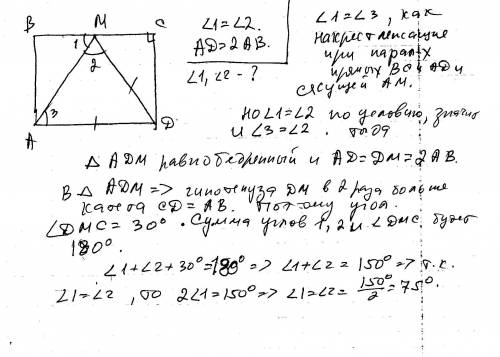 B M C
1
2
3
A D
∠1=∠2.
AD=2AB.
∠1,∠2-?
∠1=∠3, как
накрест лежащие
при парал-х
прямых BC и AD и
секущей AM.
но ∠1=∠2 по условию, значит
и ∠3=∠2. тогда
△ ADM равнобедренный и AD=DM=2AB.
В △ ADM => гипотенуза DM в 2 раза больше
катета CD=AB. Потому угол
∠DMC=30°. Сумма углов 1, 2 и ∠DMC будет
180°.
∠1+∠2+30°=180° => ∠1+∠2=150° => т.к.
∠1=∠2, то 2∠1=150° => ∠1=∠2=150°/2=75°.